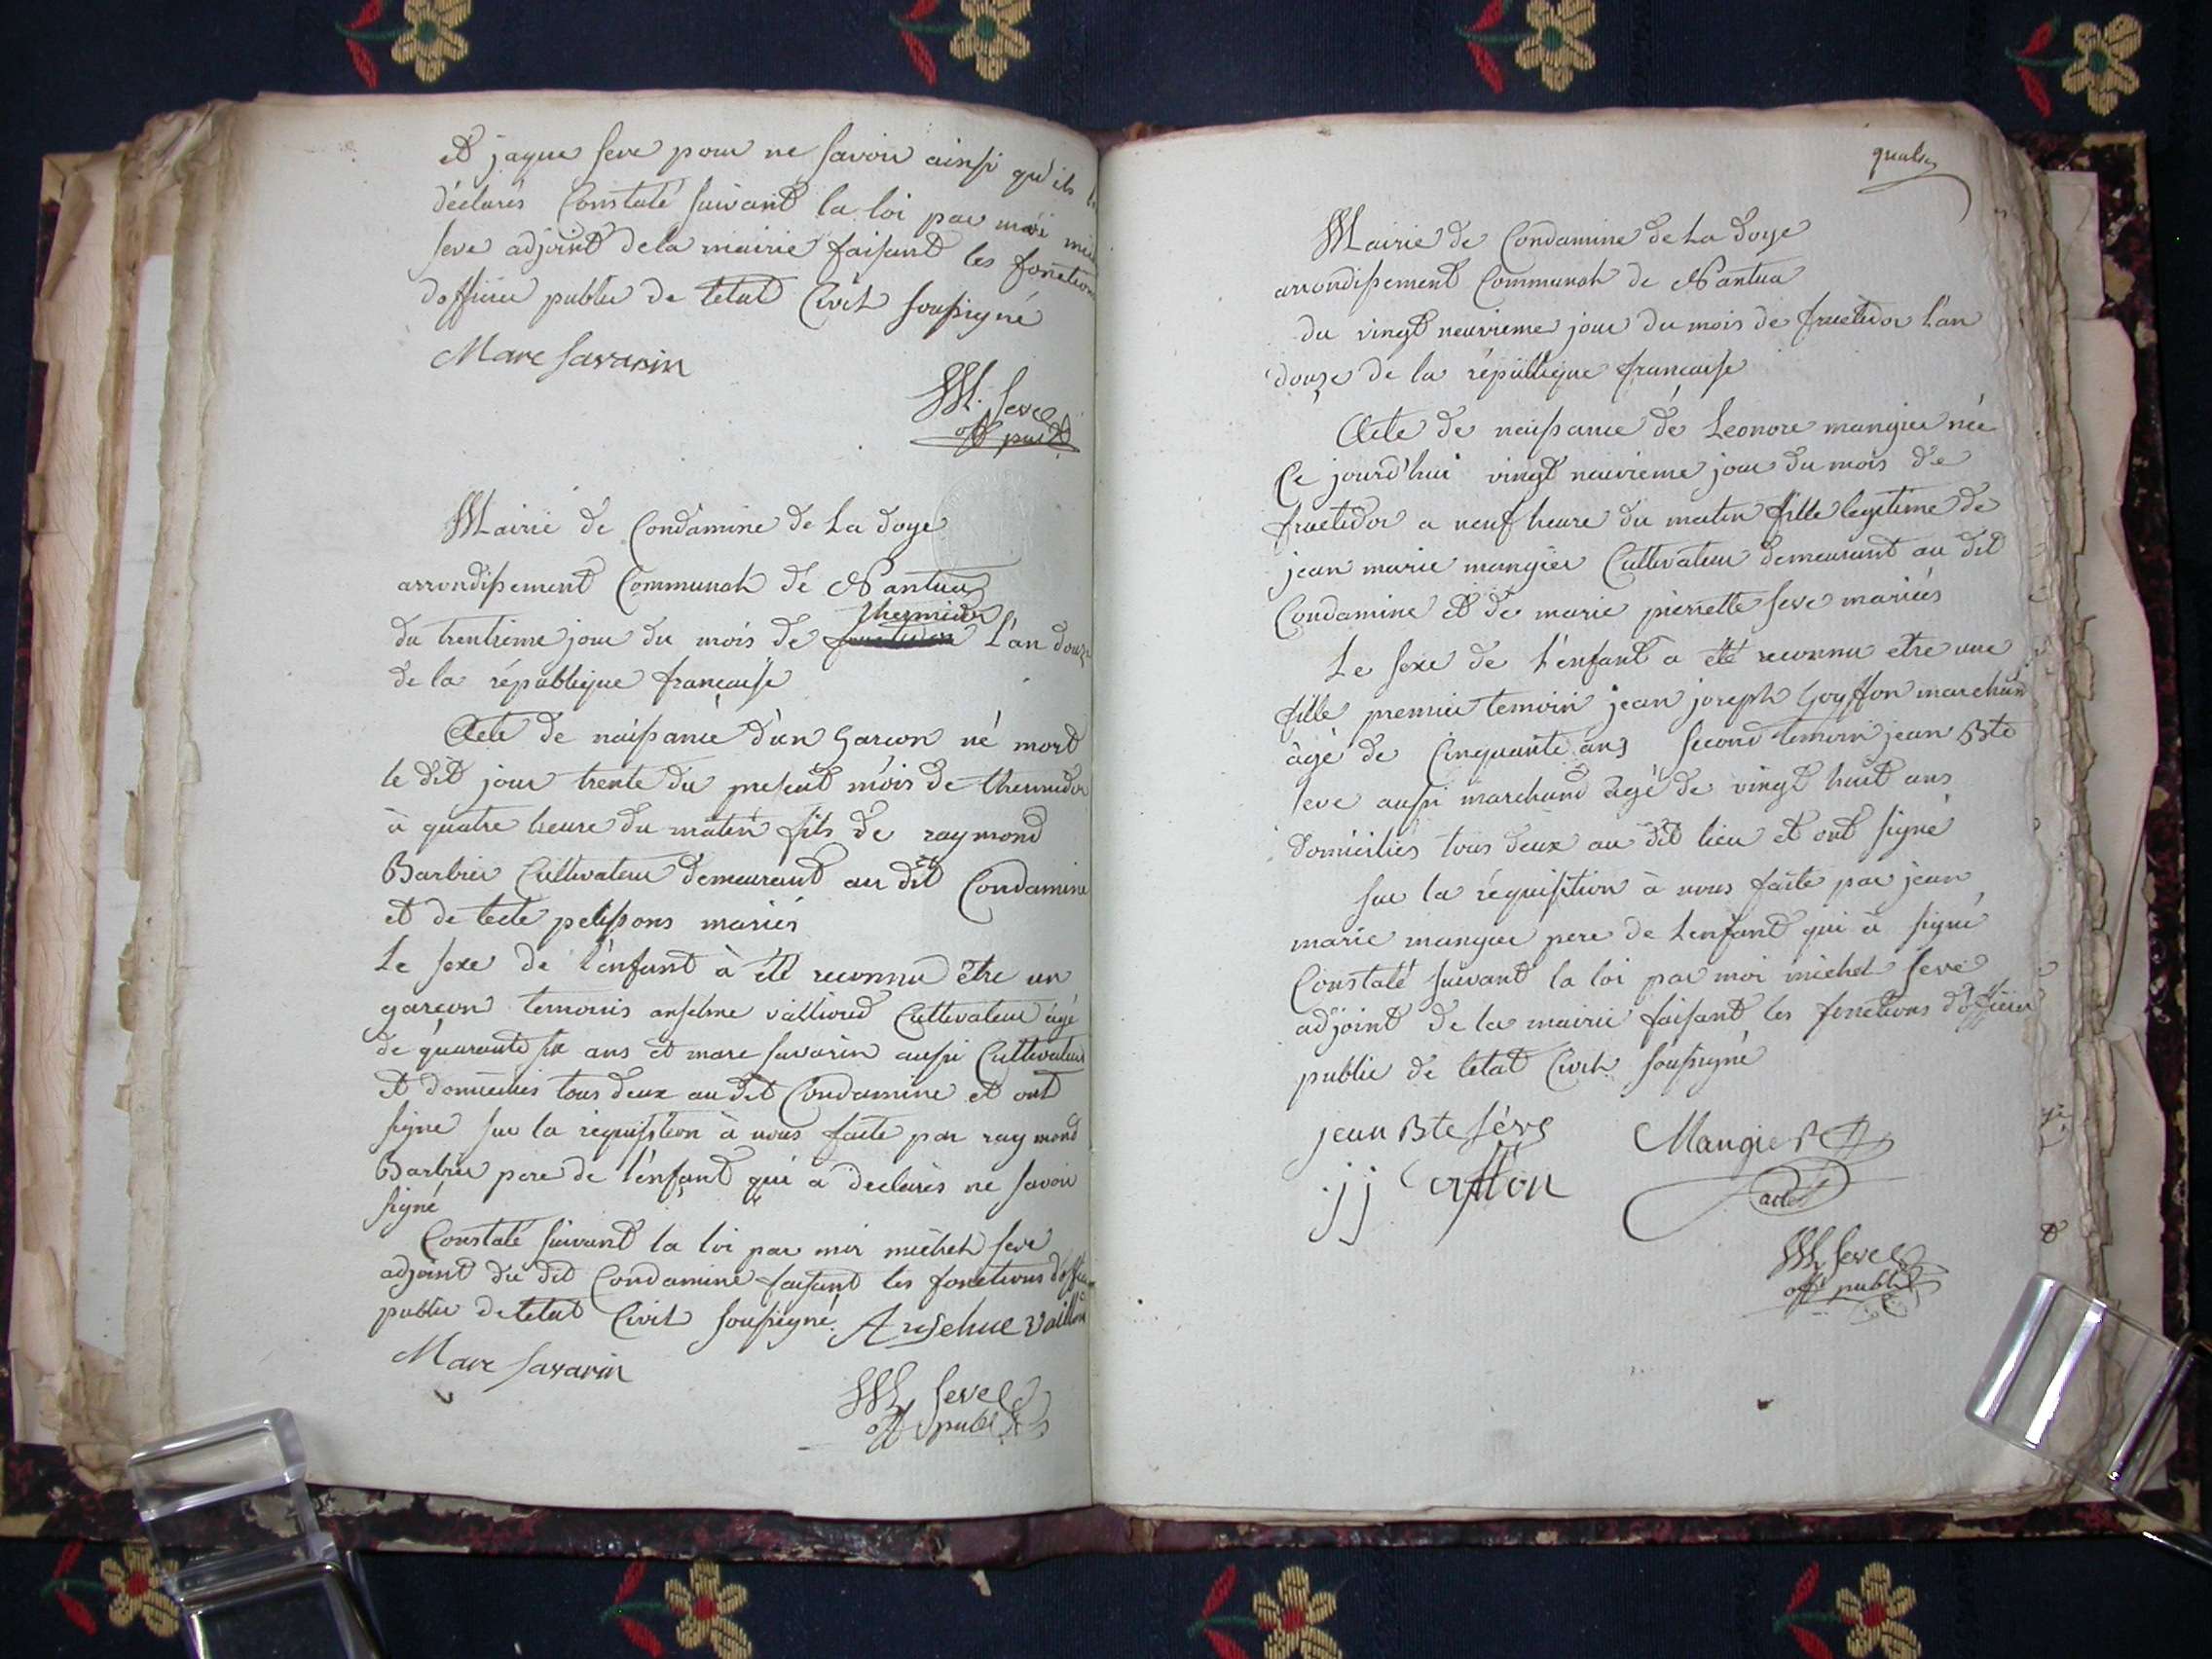 et jaque seve pour ne savoir ainsi qu'ils
déclarés Constaté suivant la loi par moi
seve adjoint de la mairie faisant les fonctions
d'officier public de l'etat Civil soussigné
Marc savarin
M. Seve
off public
Mairie de Condamine de La doye
arrondissement Communal de Nantua
thermidor
du trentieme jour du mois de fructidor L'an douze
de la république française
Acte de naissance d'un Garcon né mort
le dit jour trente du present mois de thermidor
à quatre heure du matin fils de raymond
Barbier Cultivateur demeurant au dit Condamine
et de tecle pelissons mariés
Le sexe de l'enfant à été reconnu être un
garçon temoins anselme vailloud Cultivateur âgé
de quarante six ans et marc savarin aussi Cultivateur
et domiciliés tous deux au dit Condamine et ont
signé sur la requisition à nous faite par raymond
Barbier pere de l'enfant qui a declarés ne savoir
signé
Constaté suivant la loi par moi michel seve
adjoint du dit Condamine faisant les fonctions d'officier
public de l'etat Civil soussigné. Anselme
Marc savarin
M Seve
off publ
Mairie de Condamine de La doye
arrondissement Communal de Nantua
du vingt neuvieme jour du mois de fructidor L'an
douze de la république française
Acte de naissance de Leonore mangier née
Ce jourd'hui vingt neuvieme jour du mois de
fructidor a neuf heure du matin fille legitime de
jean marie mangier Cultivateur demeurant au dit
Condamine et de marie pierrette seve mariés
Le sexe de l'enfant a été reconnu etre une
fille premier temoin jean joseph Goyffon marchand
âgé de Cinquante ans second temoin jean Bte
seve aussi marchand agé de vingt huit ans
domiciliés tous deux au dit lieu et ont signé
sur la réquisition à nous faite par jean
marie mangier pere de L'enfant qui à signé
Constaté suivant la loi par moi michel seve
adjoint de la mairie faisant les fonctions d'officier
public de l'etat Civil soussigné
jean Bte séve Mangier
jj
M Seve
off public